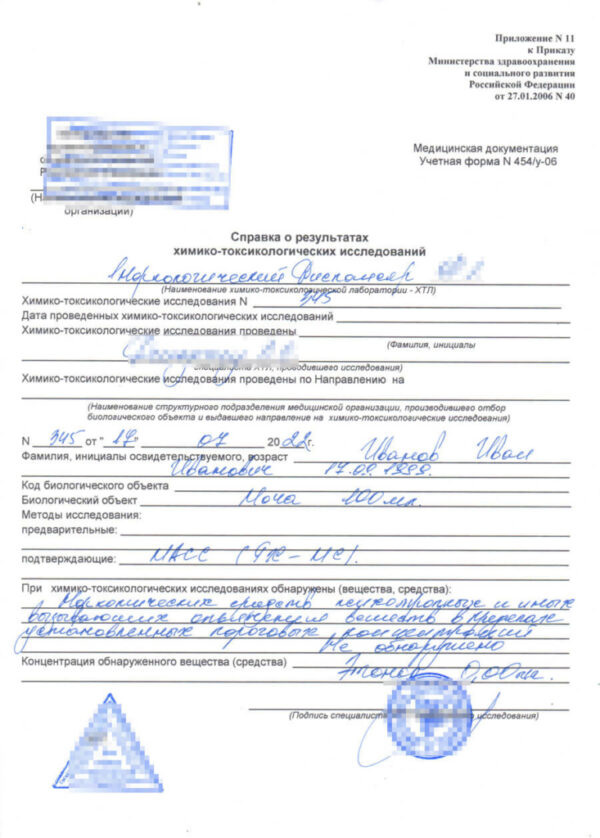 Приложение N 11
к Приказу
Министерства здравоохранения
и социального развития
Российской Федерации
от 27.01.2006 N 40
Медицинская документация
Учетная форма N 454/у-06
организации)
Справка о результатах
химико-токсикологических исследований
Наркологический Диспансер
(Наименование химико-токсикологической лаборатории - ХТЛ)
Химико-токсикологические исследования N 345
Дата проведенных химико-токсикологических исследований
Химико-токсикологические исследования проведены
(Фамилия, инициалы
специалиста ХТЛ, проводившего исследования)
Химико-токсикологические исследования проведены по Направлению на
(Наименование структурного подразделения медицинской организации, производившего отбор
биологического объекта и выдавшего направление на химико-токсикологические исследования)
N 345 от "17" 07 2022г.
Фамилия, инициалы освидетельствуемого, возраст Иванов Иван
Иванович 17.09.1999.
Код биологического объекта
Биологический объект Моча 100мл.
Методы исследования:
предварительные:
подтверждающие: МАСС (ГХ-МС).
При химико-токсикологических исследованиях обнаружены (вещества, средства):
Наркотических средств психотропных и иных
вызывающих опьянения веществ в пределах
установленных пороговых концентраций
Не обнаружено
Концентрация обнаруженного вещества (средства) Этанол 0,00
(Подпись специалист исследования)